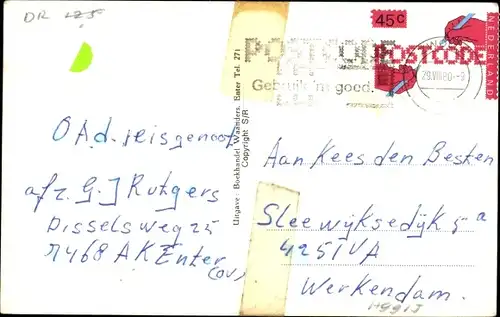 DR 125
45c
NEDERLAND
POSTCODE
29.VIII.80.-9
POSTCODE
Gebruik 'm goed.
Uitgave: Boekhandel Waanders, Enter Tel. 271
Copyright S/R
OAd. reisgenoot
afz. G.J Rutgers
Disselsweg 25
7468 AK Enter
(OV)
Aan Kees den Besten
Sleewijksedijk 5a
4251VA
Werkendam.